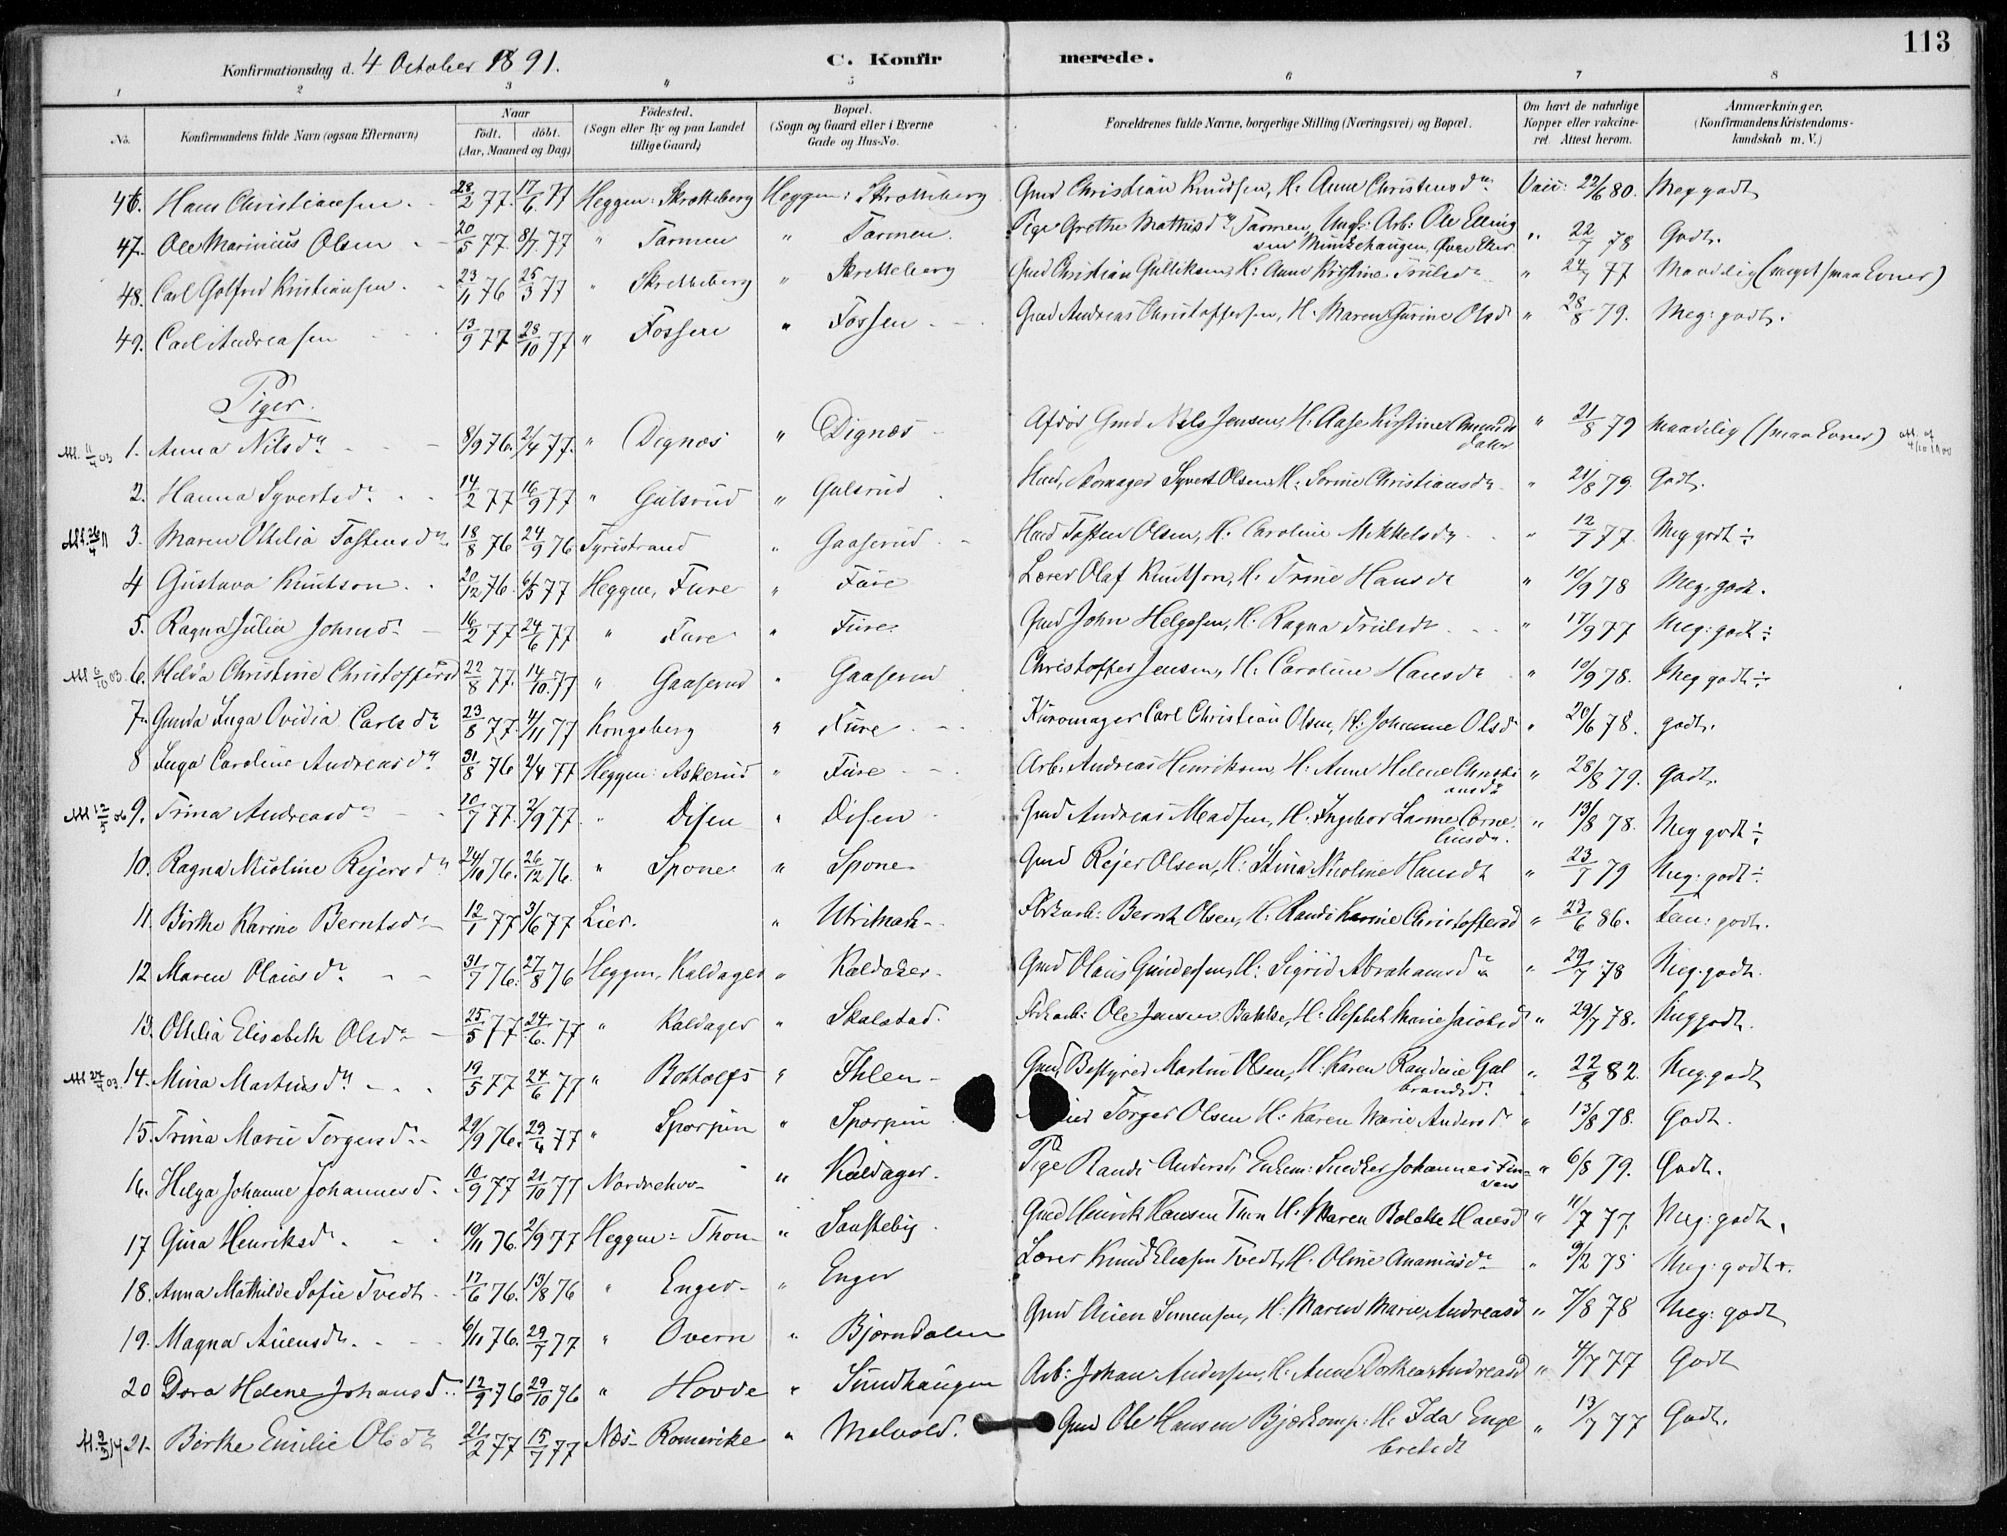 113
Konfirmationsdag d. 4 October 1891. C. Konfirmerede.
1 2 3 4 5 6 7 8
No. Konfirmandens fulde Navn (ogsaa Efternavn) Naar født. døbt. (Aar, Maaned og Dag) Fødested. (Sogn eller By og paa Landet tillige Gaard) Bopæl. (Sogn og Gaard eller i Byerne Gade og Hus-No. Forældrenes fulde Navne, borgerlige Stilling (Næringsvei) og Bopæl. Om havt de naturlige Kopper eller vakcineret. Attest herom. Anmærkninger. (Konfirmandens Kristendomskundskab m. V.)
46. Hans Christiansen. 28/2 77. 17/6 77 Heggen: Skrætteberg Heggen: Skrætteberg Gmd Christian Knudsen, H: Anne Christensdr. Vacc: 22/6 80. Meg godt
47. Ole Marinius Olsen 20/5 77. 8/7 77 " Tarmen " Tarmen. Pige Grethe Mathisdr Tarmen, Ungk: Arb: Ole Ellingsen Munkehaugen, Øvre Eker " 22/7 78 Godt.
48. Carl Golfred Kristiansen. 23/11 76 25/3 77 " Skretteberg " Skretteberg Gmd Christian Gulliksen, H: Anne Kristine Trulsdr " 24/7 77 Maadelig (meget smaa Evner)
49. Carl Andreasen 13/9 77 28/10 77 " Fossen " Fossen Gmd Andreas Christoffersen, H: Maren Jurine Olsdr " 28/8 79. Meg: godt.
Piger.
1. Anna Nilsdr 8/9 76. 2/4 77. " Dignæs " Dignæs Afdød Gmd Nels Jensen, H. Aase Kirstine Amundsdatter " 21/8 79 Maadelig (smaa Evner)
2. Hanna Syvertsdr. 14/2 77 16/9 77 " Gulsrud " Gulsrud Skomager Syvert Olsen H: Sorine Christiansdr. " 21/8 79. Godt.
3. Maren Othilia Tostensdr 18/8 76 24/9 76 Tyristrand " Gaaserud Hmd Tosten Olsen, H. Caroline Mikkelsdr " 12/7 77 Meg godt ÷
4 Gustava Knutson. 20/12 76. 6/5 77 Heggen, Fure " Fure Lærer Olaf Knutson, H. Trine Hansdr " 10/9 78 Meg: godt.
5. Ragna Julia Johnsdr 16/2 77 24/6 77 " Fure " Fure Gmd John Helgesen, H. Ragna Trulsdr " 17/9 77 Meg: godt ÷
6. Helda Christine Christoffersd 22/8 77. 14/10 77 " Gaaserud " Gaaserud Christoffer Jensen, H. Caroline Hansdr " 10/9 78. Meg godt ÷
7. Gunda Inga Ovidia Carlsdr 23/8 77. 4/11 77 Kongsberg " Fure Kuromager Carl Christian Olsen, H: Johanne Olsd " 20/6 78. godt.
8 Inga Caroline Andreasdr 31/8 76 2/4 77 Heggen: Askerud " Fure Arb: Andreas Henriksen H: Anne Helene Christiansdr " 28/8 79. Godt.
9. Trina Andreasdr 10/7 77. 2/9 77. " Disen " Disen Gmd Andreas Madsen, H. Ingebor Laovine Corneliusdr. " 13/8 78. Meg godt ÷
10. Ragna Nicoline Rejersdr 24/10 76. 26/12 76. " Spone " Spone Gmd Rejer Olsen, H: Stina Nicoline Hansdt " 23/7 79 Meg: godt ÷
11. Birthe Karine Berntsdr 12/1 77 3/6 77 Lier. " Fbrkarb: Bernt Olsen, H: Randi Karine Christoffersd " 23/6 86. Tem: godt.
12 Maren Olausdr 31/7 76. 27/8 76 Heggen, Kaldager " Kaldager Gmd Olaus Gundersen, H: Sigrid Abrahamsdr " 29/7 78 Meg: godt.
13. Othilia Elisabeth Olsdr 25/5 77 24/6 77 " Kaldager " Skalstad Fbrkarb: Ole Jensen Bakke, H: Elisabet Marie Jacobsd " 29/7 78. Meg godt.
14. Mina Martinsdr 19/5 77 24/6 77 " Bottolfs " Ihlen Gmd, Bestyrer Martin Olsen, H: Karen Randine Gulbrandsd. " 22/8 82. Meg: godt
15. Trina Marie Torgersdr. 29/9 76. 29/4 77 " Sporpin " Sporpin Torger Olsen H: Karen Marie Andersd. " 13/8 78. Godt.
16. Helga Johanne Johannesd. 10/9 77 21/10 77 Norderhov " Kaldager. Pige Randi Andersd, Enkem: Snedker Johannes " 6/8 79. Godt.
17 Gina Henriksdr. 10/11 76. 2/9 77 Heggen: Thon " Saasteby Gmd Henrik Hansen Thon H. Maren Bolette Hansd " 11/7 77 Meg: godt.
18. Anna Mathilde Sofie Tvedt. 17/6 76. 13/8 76 " Enger " Enger Lærer Knud Eleasen Tvedt, H. Oline Ananiasdr " 9/2 78 Meg: godt +.
19. Magna Auensdr. 6/11 76. 29/7 77 " Overn " Bjørndalen Gmd Auen Simensen, H: Maren Marie Andreasd " 7/8 78 Meg: godt
20 Dora Helene Johansd. 12/9 76 29/10 76 " Hovde " Sundhaugen Arb: Johan Andersen, H: Anne Dorthea Andreasd " 4/7 77 Godt
21. Birthe Emilie Olsdr 21/2 77 15/7 77 Næs Romerike " Melvold. Gmd Ole Hansen H: Ida Engebretsdt " 13/7 77 Godt.